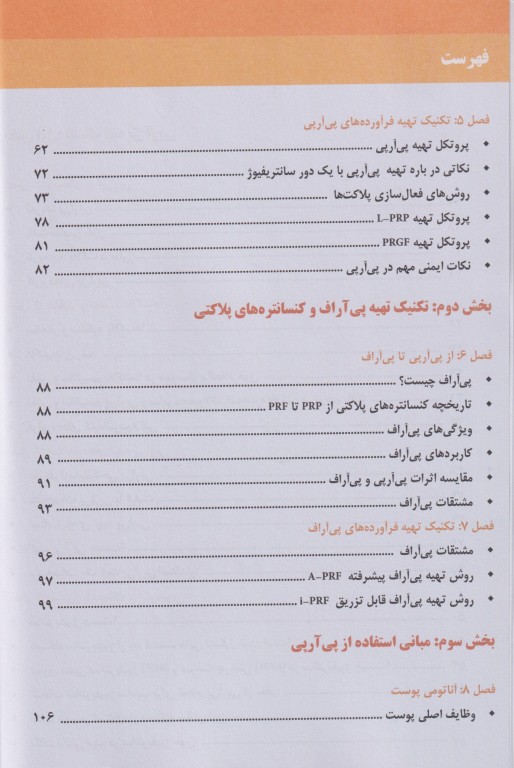 فهرست
فصل ۵: تکنیک تهیه فرآورده‌های پی‌آرپی
• پروتکل تهیه پی‌آرپی ........ ۶۲
• نکاتی در باره تهیه پی‌آرپی با یک دور سانتریفیوژ ........ ۷۲
• روش‌های فعال‌سازی پلاکت‌ها ........ ۷۳
• پروتکل تهیه L-PRP ........ ۷۸
• پروتکل تهیه PRGF ........ ۸۱
• نکات ایمنی مهم در پی‌آرپی ........ ۸۲
بخش دوم: تکنیک تهیه پی‌آراف و کنسانتره‌های پلاکتی
فصل ۶: از پی‌آرپی تا پی‌آراف
• پی‌آراف چیست؟ ........ ۸۸
• تاریخچه کنسانتره‌های پلاکتی از PRP تا PRF ........ ۸۸
• ویژگی‌های پی‌آراف ........ ۸۸
• کاربردهای پی‌آراف ........ ۸۹
• مقایسه اثرات پی‌آرپی و پی‌آراف ........ ۹۱
• مشتقات پی‌آراف ........ ۹۳
فصل ۷: تکنیک تهیه فرآورده‌های پی‌آراف
• مشتقات پی‌آراف ........ ۹۶
• روش تهیه پی‌آراف پیشرفته A-PRF ........ ۹۷
• روش تهیه پی‌آراف قابل تزریق i-PRF ........ ۹۹
بخش سوم: مبانی استفاده از پی‌آرپی
فصل ۸: آناتومی پوست
• وظایف اصلی پوست ........ ۱۰۶